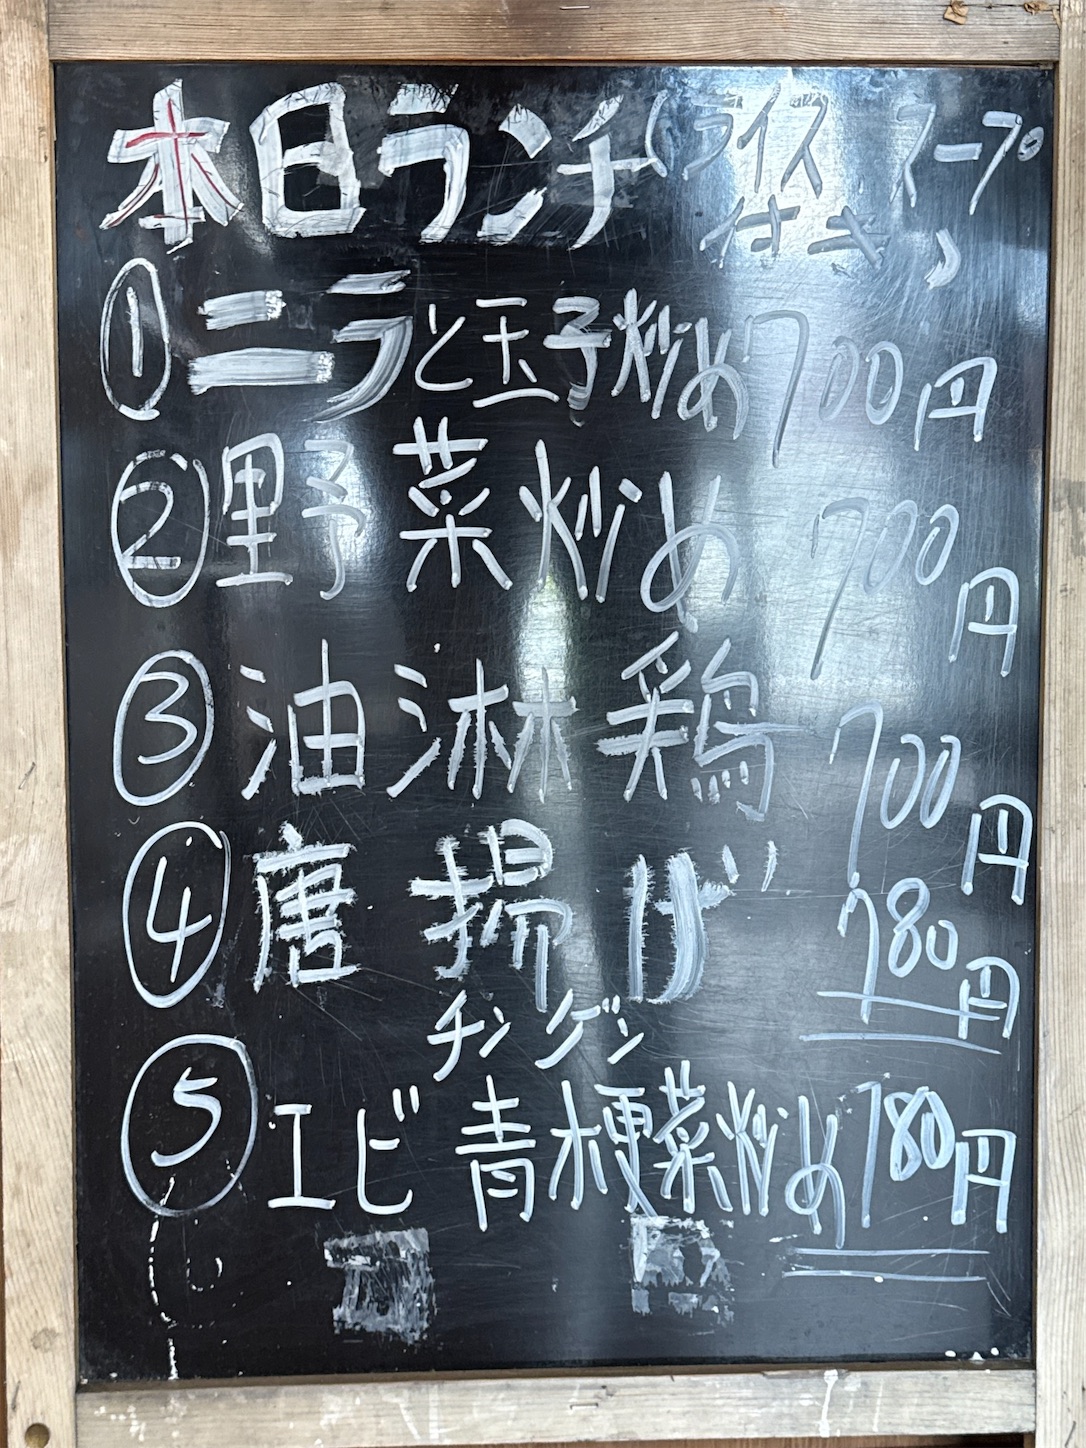 本日ランチ(ライス スープ
付き)
① ニラと玉子炒め 700円
② 野菜炒め 700円
③ 油淋鶏 700円
④ 唐揚げ 780円
チンゲン
⑤ エビ青梗菜炒め 780円